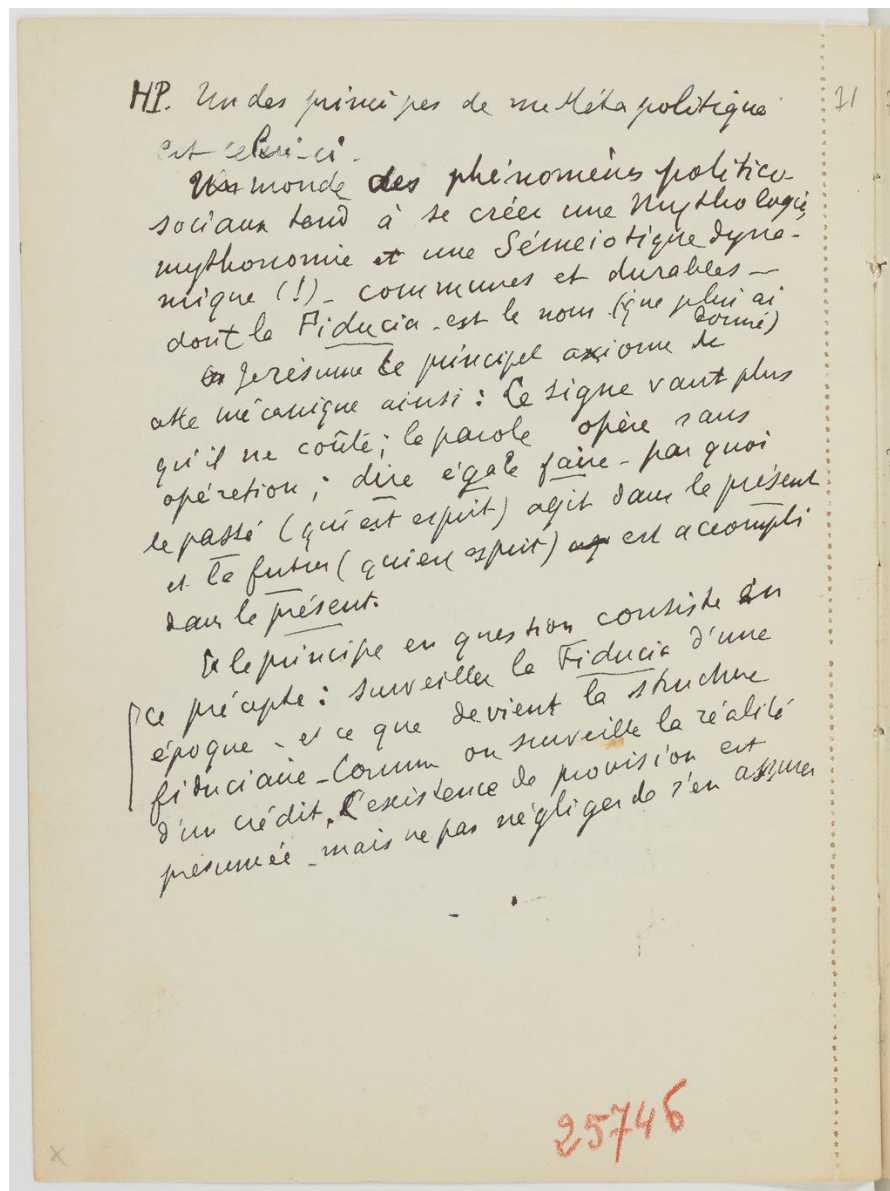 HP. Un des principes de ma Métapolitique
est celui-ci.
Un monde des phénomènes politico-
sociaux tend à se créer une Mythologie,
mythonomie et une Séméiotique dyna-
mique (!) - communes et durables -
dont la Fiducia - est le nom (que je lui ai
donné)
Je résume le principal axiome de
cette mécanique ainsi : Le signe vaut plus
qu'il ne coûte ; la parole opère sans
opération ; dire égale faire - par quoi
le passé (qui est esprit) agit dans le présent
et le futur (qui est esprit) est accompli
dans le présent.
Et le principe en question consiste en
ce précepte : surveiller la Fiducia d'une
époque - et ce que devient la structure
fiduciaire - Comme on surveille la réalité
d'un crédit. L'existence de provision est
présumée - mais ne pas négliger de s'en assurer
71
25746
x